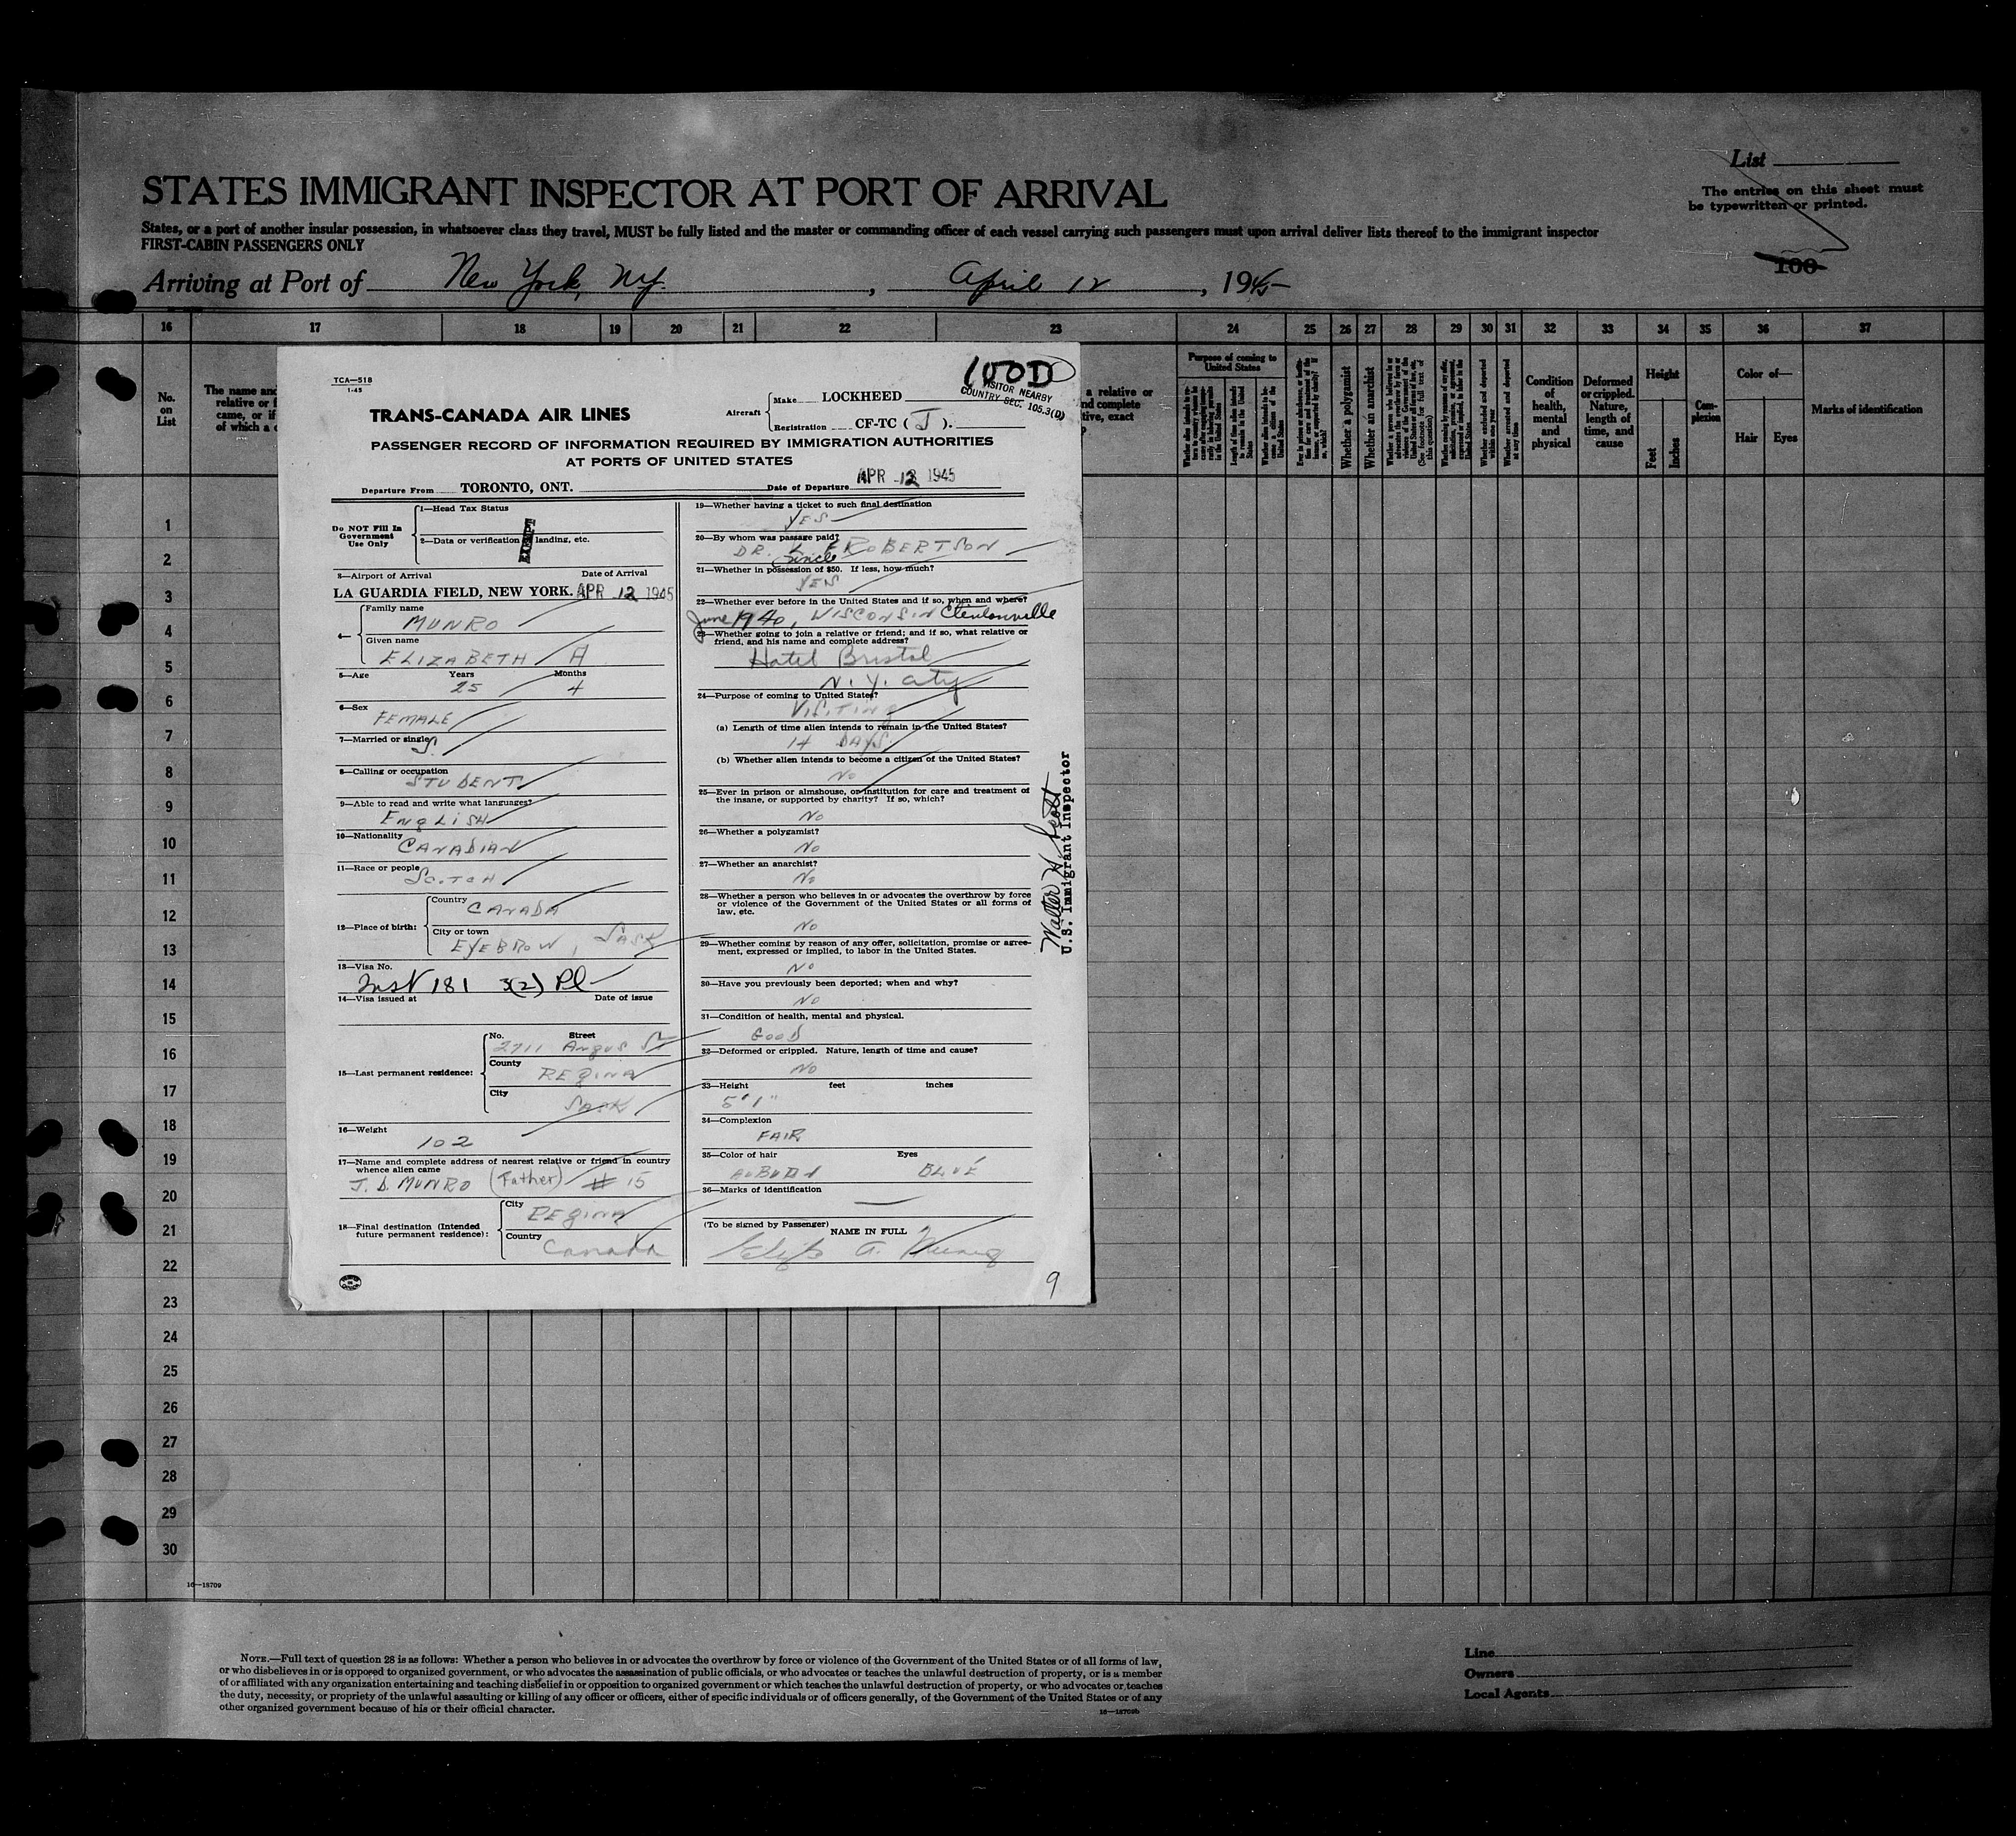 List
The entries on this sheet must
be typewritten or printed.
100
STATES IMMIGRANT INSPECTOR AT PORT OF ARRIVAL
States, or a port of another insular possession, in whatsoever class they travel, MUST be fully listed and the master or commanding officer of each vessel carrying such passengers must upon arrival deliver lists thereof to the immigrant inspector
FIRST-CABIN PASSENGERS ONLY
Arriving at Port of New York, NY. , April 12 , 1945
16 17 18 19 20 21 22 23 24 25 26 27 28 29 30 31 32 33 34 35 36 37
No.
on
List
The name and
relative or f
came, or if
of which a c
a relative or
nd complete
tive, exact
Purpose of coming to
United States
Whether a polygamist
Whether an anarchist
Condition
of
health,
mental
and
physical
Deformed
or crippled.
Nature,
length of
time, and
cause
Height
Feet
Inches
Com-
plexion
Color of—
Hair Eyes
Marks of identification
TCA—518
1-45
100D
VISITOR NEARBY
COUNTRY SEC. 105.3(D)
TRANS-CANADA AIR LINES
Aircraft
Make LOCKHEED
Registration CF-TC ( J ).
PASSENGER RECORD OF INFORMATION REQUIRED BY IMMIGRATION AUTHORITIES
AT PORTS OF UNITED STATES
Departure From TORONTO, ONT. Date of Departure APR 12 1945
Do NOT Fill In
Government
Use Only
1—Head Tax Status
2—Data or verification landing, etc.
EXEMPT
3—Airport of Arrival Date of Arrival
LA GUARDIA FIELD, NEW YORK. APR 12 1945
4—
Family name
MUNRO
Given name
ELIZABETH A
5—Age Years Months
25 4
6—Sex
FEMALE
7—Married or single
S.
8—Calling or occupation
STUDENT
9—Able to read and write what languages?
ENGLISH
10—Nationality
CANADIAN
11—Race or people
SCOTCH
12—Place of birth:
Country
CANADA
City or town
EYEBROW, SASK
13—Visa No.
Inst 181 3(2) Pl
14—Visa issued at Date of issue
15—Last permanent residence:
No. Street
2711 Angus St
County
REGINA
City
SASK
16—Weight
102
17—Name and complete address of nearest relative or friend in country
whence alien came
J. D. MUNRO (Father) # 15
18—Final destination (Intended
future permanent residence):
City
REGINA
Country
Canada
19—Whether having a ticket to such final destination
YES
20—By whom was passage paid?
DR. ROBERTSON
Since
21—Whether in possession of $50. If less, how much?
YES
22—Whether ever before in the United States and if so, when and where?
June 1940, WISCONSIN Clintonville
23—Whether going to join a relative or friend; and if so, what relative or
friend, and his name and complete address?
Hotel Bristol
N. Y. City
24—Purpose of coming to United States?
VISITING
(a) Length of time alien intends to remain in the United States?
14 DAYS
(b) Whether alien intends to become a citizen of the United States?
No
25—Ever in prison or almshouse, or institution for care and treatment of
the insane, or supported by charity? If so, which?
No
26—Whether a polygamist?
No
27—Whether an anarchist?
No
28—Whether a person who believes in or advocates the overthrow by force
or violence of the Government of the United States or all forms of
law, etc.
No
29—Whether coming by reason of any offer, solicitation, promise or agree-
ment, expressed or implied, to labor in the United States.
No
30—Have you previously been deported; when and why?
No
31—Condition of health, mental and physical.
GOOD
32—Deformed or crippled. Nature, length of time and cause?
NO
33—Height feet inches
5' 1"
34—Complexion
FAIR
35—Color of hair Eyes
AUBURN BLUE
36—Marks of identification
(To be signed by Passenger)
NAME IN FULL
Elizb A. Munro
9
Walter H. Scott
U.S. Immigrant Inspector
1
2
3
4
5
6
7
8
9
10
11
12
13
14
15
16
17
18
19
20
21
22
23
24
25
26
27
28
29
30
16—18709
NOTE.—Full text of question 28 is as follows: Whether a person who believes in or advocates the overthrow by force or violence of the Government of the United States or of all forms of law,
or who disbelieves in or is opposed to organized government, or who advocates the assassination of public officials, or who advocates or teaches the unlawful destruction of property, or is a member
of or affiliated with any organization entertaining and teaching disbelief in or opposition to organized government or which teaches the unlawful destruction of property, or who advocates or teaches
the duty, necessity, or propriety of the unlawful assaulting or killing of any officer or officers, either of specific individuals or of officers generally, of the Government of the United States or of any
other organized government because of his or their official character.
16—18709b
Line
Owners
Local Agents